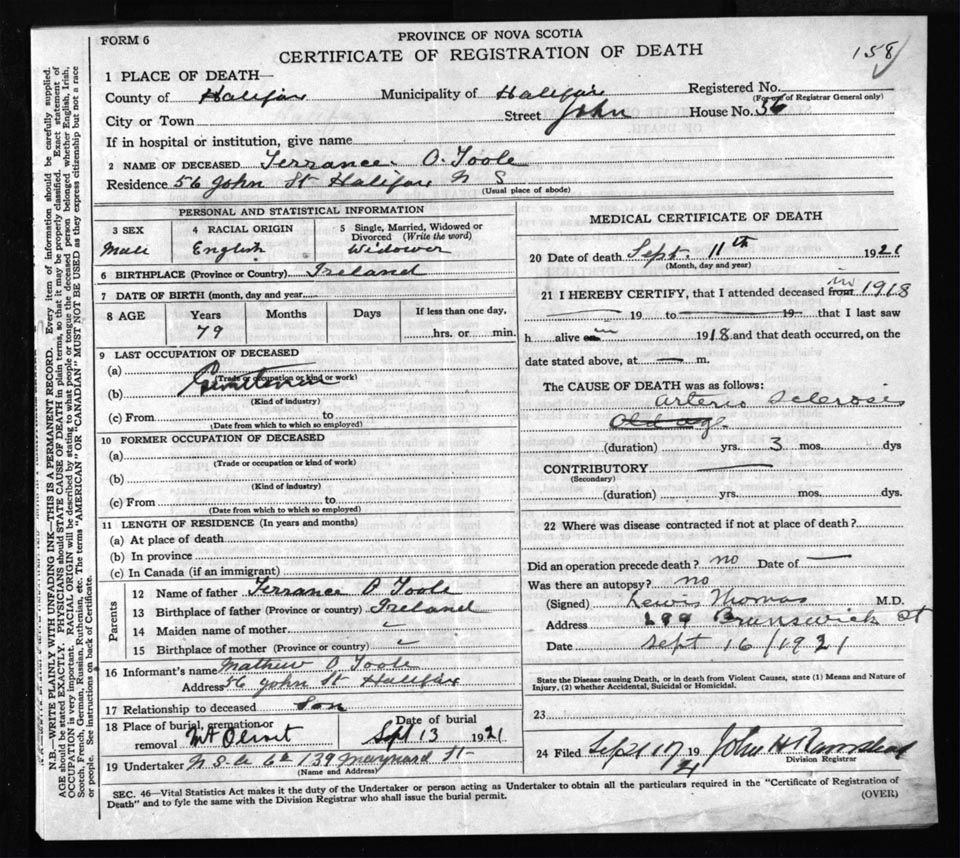 FORM 6
PROVINCE OF NOVA SCOTIA
CERTIFICATE OF REGISTRATION OF DEATH
158
1 PLACE OF DEATH—
County of Halifax Municipality of Halifax Registered No.
(For use of Registrar General only)
City or Town Street John House No. 56
If in hospital or institution, give name
2 NAME OF DECEASED Terrance O.Toole
Residence 56 John St Halifax N S
(Usual place of abode)
PERSONAL AND STATISTICAL INFORMATION
3 SEX 4 RACIAL ORIGIN 5 Single, Married, Widowed or Divorced (Write the word)
Male English Widower
6 BIRTHPLACE (Province or Country) Ireland
7 DATE OF BIRTH (month, day and year
8 AGE Years Months Days If less than one day,
79 hrs. or min.
9 LAST OCCUPATION OF DECEASED
(a)
(Trade or occupation or kind or work)
(b)
(Kind of industry)
(c) From to
(Date from which to which so employed)
10 FORMER OCCUPATION OF DECEASED
(a)
(Trade or occupation or kind of work)
(b)
(Kind of industry)
(c) From to
(Date from which to which so employed)
11 LENGTH OF RESIDENCE (In years and months)
(a) At place of death
(b) In province
(c) In Canada (if an immigrant)
Parents
12 Name of father Terrance O Toole
13 Birthplace of father (Province or country) Ireland
14 Maiden name of mother
15 Birthplace of mother (Province or country)
16 Informant's name Mathew O Toole
Address 56 John St Halifax
17 Relationship to deceased Son
18 Place of burial, cremation or removal Mt Olivet Date of burial Sept 13 1921
19 Undertaker N S U Co 139 Maynard St
(Name and Address)
MEDICAL CERTIFICATE OF DEATH
20 Date of death Sept. 11th 1921
(Month, day and year)
21 I HEREBY CERTIFY, that I attended deceased from in 1918
19 to 19 that I last saw
h alive on in 1918 and that death occurred, on
date stated above, at — m.
The CAUSE OF DEATH was as follows:
Arterio Sclerosis
Old age
(duration) yrs. 3 mos. dys
CONTRIBUTORY
(Secondary)
(duration) yrs. mos. dys.
22 Where was disease contracted if not at place of death?
Did an operation precede death? no Date of —
Was there an autopsy? no
(Signed) Lewis Thomas M.D.
Address Brunswick St
Date Sept 16/1921
State the Disease causing Death, or in death from Violent Causes, state (1) Means and Nature of
Injury, (2) whether Accidental, Suicidal or Homicidal.
23
24 Filed Sept 17 1921 John H
Division Registrar
SEC. 46—Vital Statistics Act makes it the duty of the Undertaker or person acting as Undertaker to obtain all the particulars required in the "Certificate of Registration of
Death" and to fyle the same with the Division Registrar who shall issue the burial permit. (OVER)
N.B.—WRITE PLAINLY WITH UNFADING INK—THIS IS A PERMANENT RECORD. Every item of information should be carefully supplied.
AGE should be stated EXACTLY. PHYSICIANS should STATE CAUSE OF DEATH in plain terms, so that it may be properly classified. Exact statement of
OCCUPATION is very important. RACIAL ORIGIN will be described by stating to what people or tongue the deceased person belonged whether English, Irish,
Scotch, French, German, Russian, Ruthenian, etc. The terms "AMERICAN" OR "CANADIAN" MUST NOT BE USED as they express citizenship but not a race
or people. See instructions on back of Certificate.